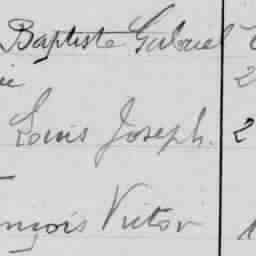 Baptiste Gabriel
2
Louis Joseph. 2
Victor